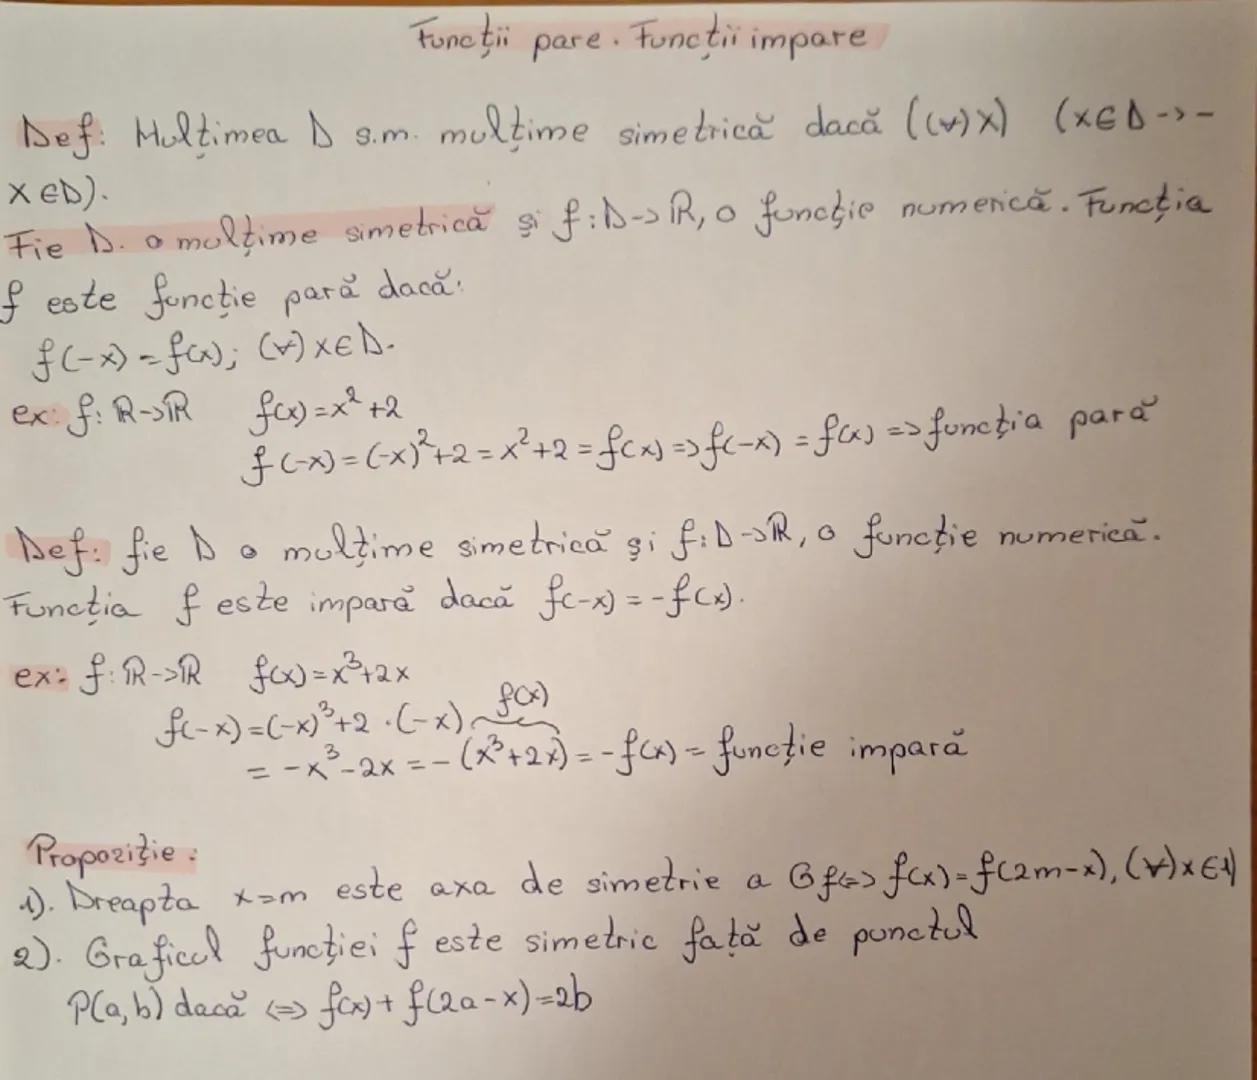 Funcții pare. Funcții impare
Def: Mulțimea D s.m. mulțime simetrică dacă ((∀)x) (x∈D->-
x∈D).
Fie D. o mulțime simetrică și f:D->ℝ, o funcție numerică. Funcția
f este funcție pară dacă:
f(-x)=f(x); (∀)x∈D.
ex: f:ℝ->ℝ f(x)=x²+2
f(-x)=(-x)²+2=x²+2=f(x)=>f(-x)=f(x)=>funcția pară
Def: fie D o mulțime simetrică și f:D->ℝ, o funcție numerică.
Funcția f este impară dacă f(-x)=-f(x).
ex: f:ℝ->ℝ f(x)=x³+2x
f(-x)=(-x)³+2·(-x) f(x)
=-x³-2x=-(x³+2x)=-f(x)=funcție impară
Propoziție:
1). Dreapta x=m este axa de simetrie a Gf<=>f(x)=f(2m-x),(∀)x∈
2). Graficul funcției f este simetric față de punctul
P(a,b) dacă <=> f(x)+f(2a-x)=2b